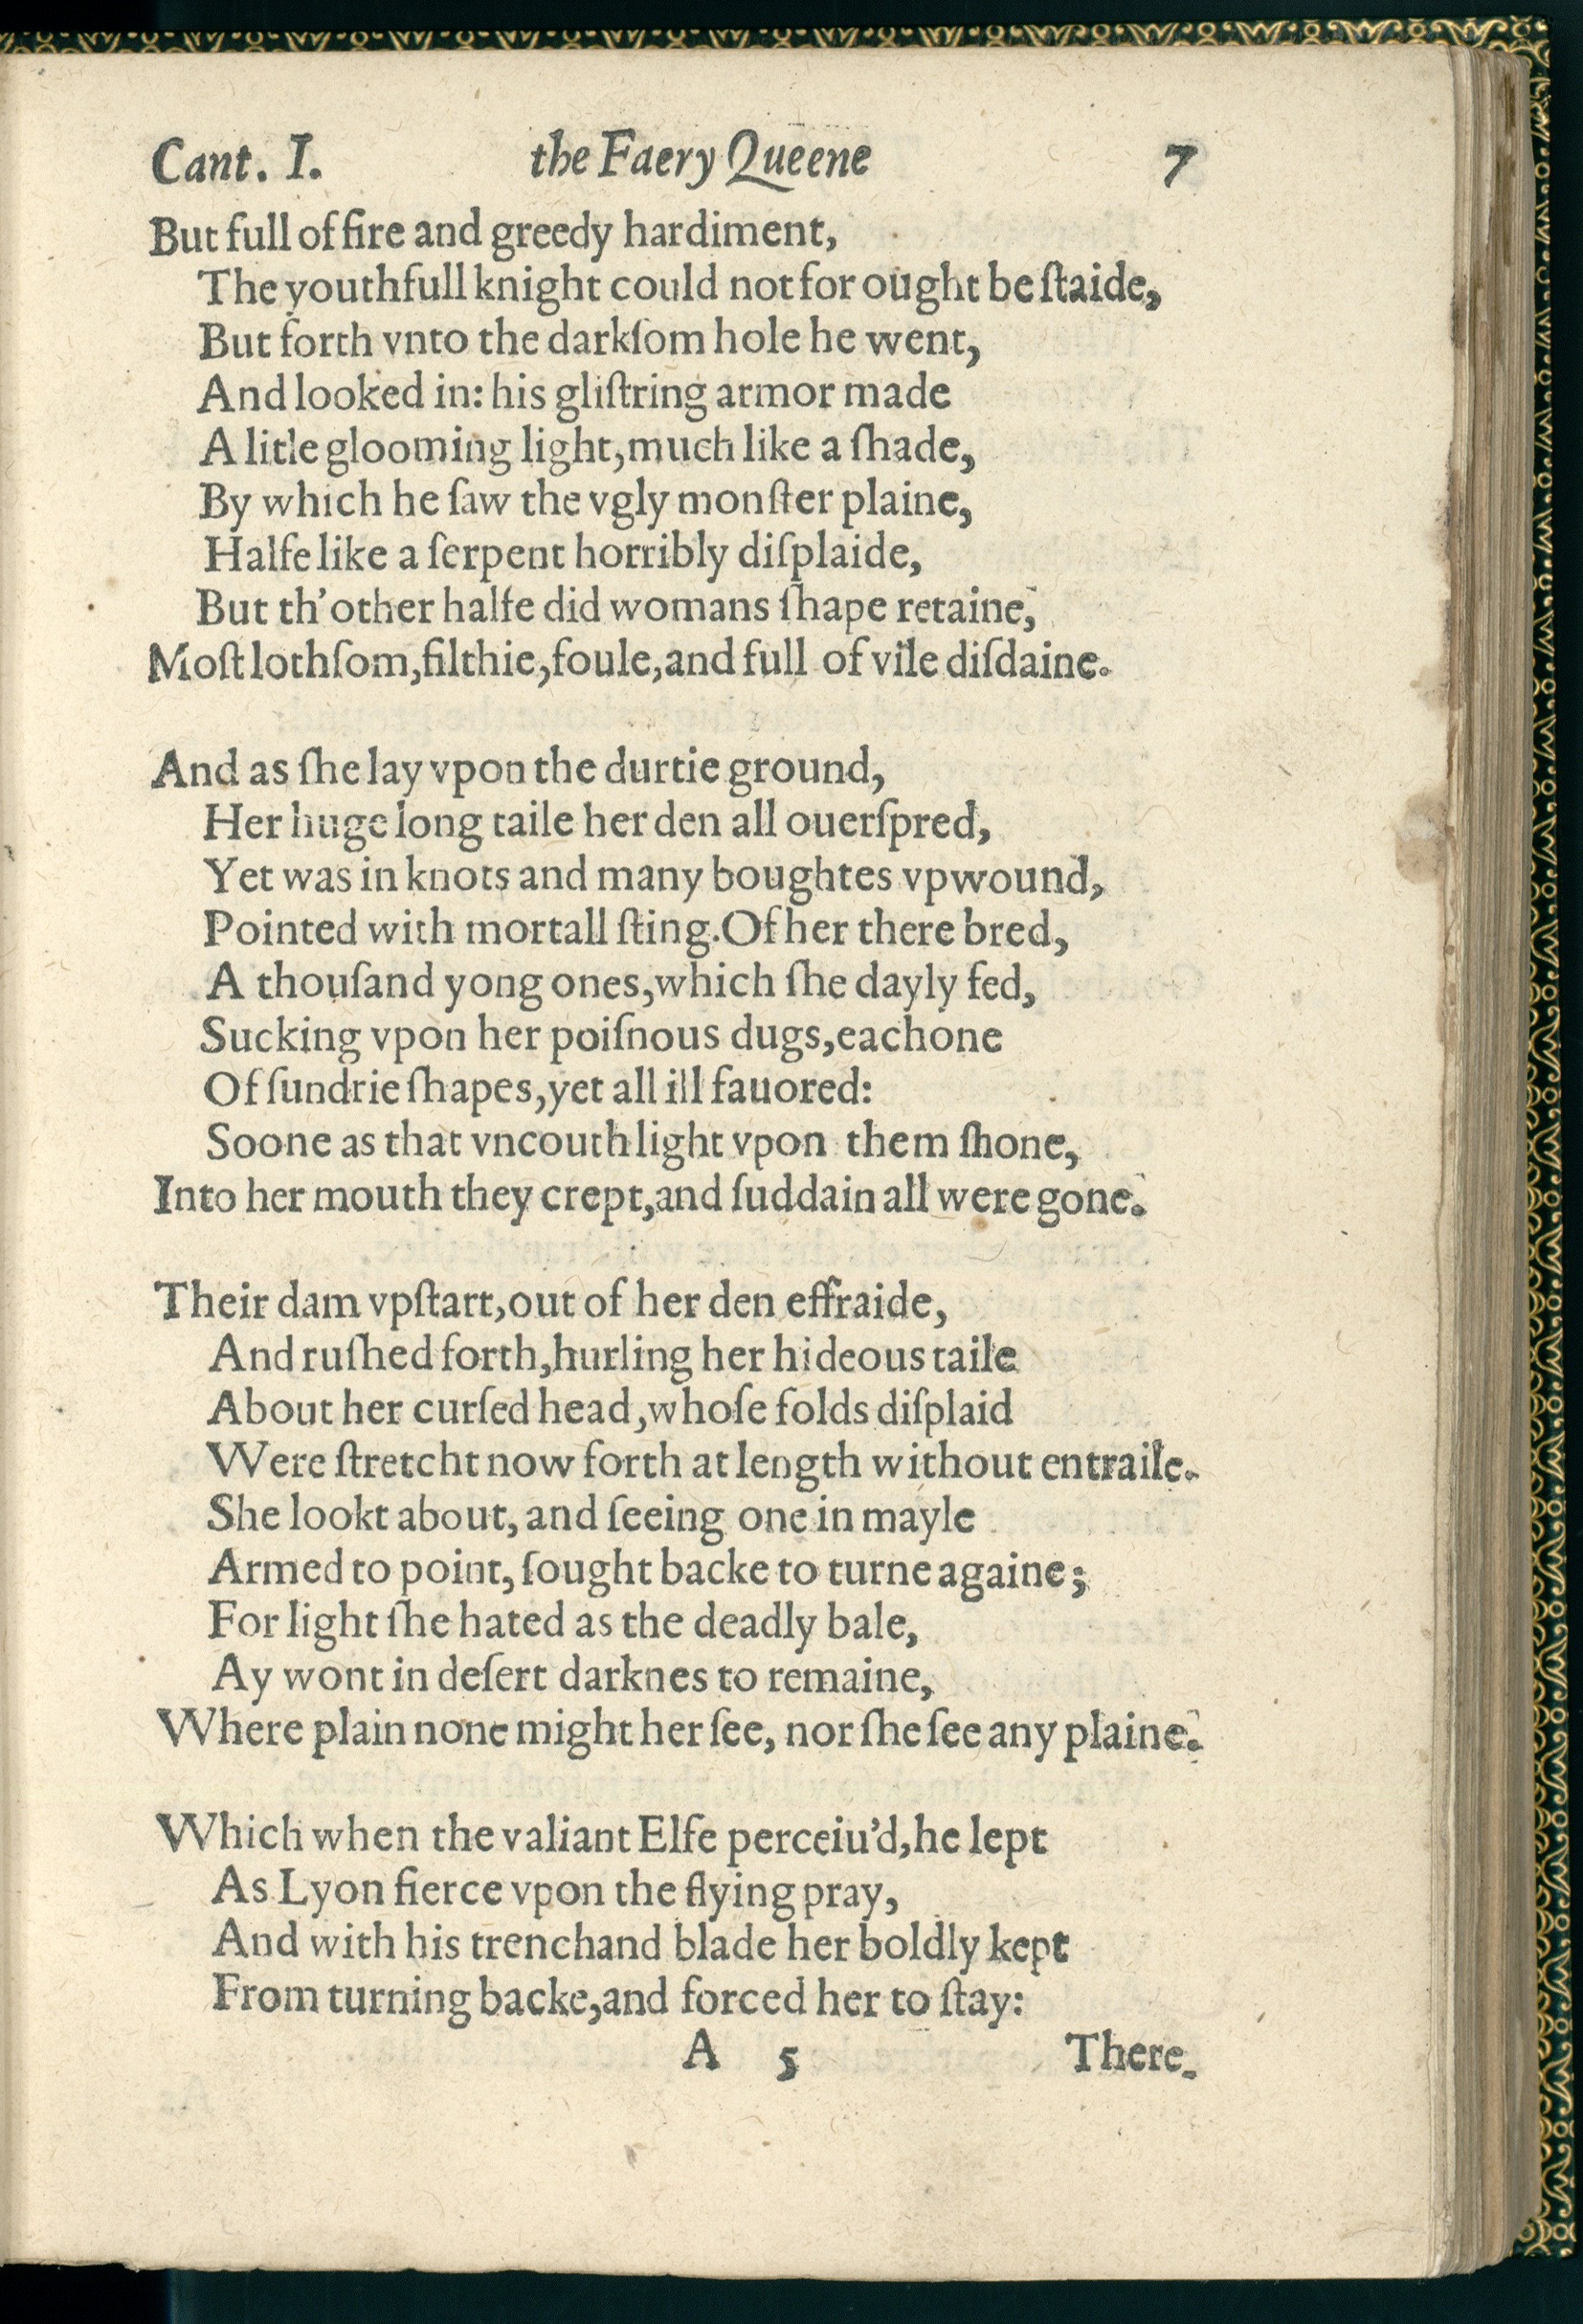 Cant. I. the Faery Queene 7
But full of fire and greedy hardiment,
The youthfull knight could not for ought be ſtaide,
But forth vnto the darkſom hole he went,
And looked in: his gliſtring armor made
A litle glooming light, much like a ſhade,
By which he ſaw the vgly monſter plaine,
Halfe like a ſerpent horribly diſplaide,
But th'other halfe did womans ſhape retaine,
Moſt lothſom, filthie, foule, and full of vile diſdaine.
And as ſhe lay vpon the durtie ground,
Her huge long taile her den all ouerſpred,
Yet was in knots and many boughtes vpwound,
Pointed with mortall ſting. Of her there bred,
A thouſand yong ones, which ſhe dayly fed,
Sucking vpon her poiſnous dugs, eachone
Of ſundrie ſhapes, yet all ill fauored:
Soone as that vncouth light vpon them ſhone,
Into her mouth they crept, and ſuddain all were gone.
Their dam vpſtart, out of her den effraide,
And ruſhed forth, hurling her hideous taile
About her curſed head, whoſe folds diſplaid
Were ſtretcht now forth at length without entraile.
She lookt about, and ſeeing one in mayle
Armed to point, ſought backe to turne againe;
For light ſhe hated as the deadly bale,
Ay wont in deſert darknes to remaine,
Where plain none might her ſee, nor ſhe ſee any plaine.
Which when the valiant Elfe perceiu'd, he lept
As Lyon fierce vpon the flying pray,
And with his trenchand blade her boldly kept
From turning backe, and forced her to ſtay:
A 5 There.